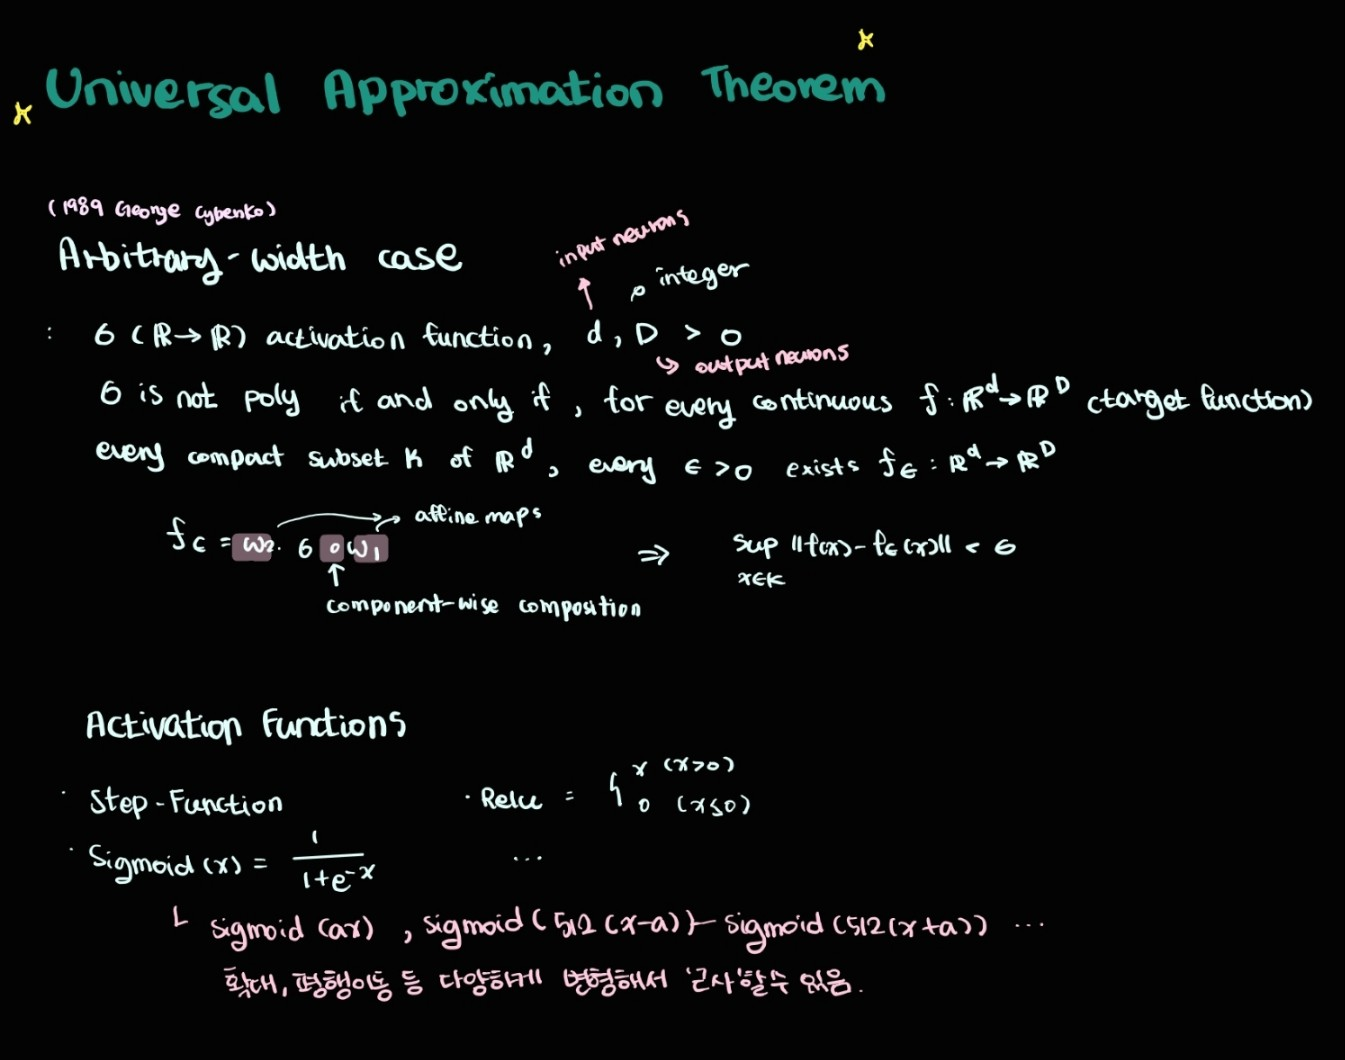 Universal Approximation Theorem
(1989 George Cybenko)
Arbitrary-width case
input neurons
integer
: σ (ℝ→ℝ) activation function, d, D > 0
output neurons
σ is not poly if and only if, for every continuous f: ℝᵈ→ℝᴰ (target function)
every compact subset K of ℝᵈ, every ϵ >0 exists fϵ : ℝᵈ→ℝᴰ
affine maps
fϵ = W₂ · σ ∘ W₁ ⇒ sup ||f(x) - fϵ(x)|| < ϵ
x∈K
component-wise composition
Activation Functions
· Step-Function
· Relu = { x (x>0)
0 (x≤0)
· Sigmoid (x) = 1 / 1+e⁻ˣ
...
ㄴ sigmoid (ax), sigmoid (512 (x-a)) - sigmoid (512(x+a)) ...
확대, 평행이동 등 다양하게 변형해서 '근사'할 수 있음.